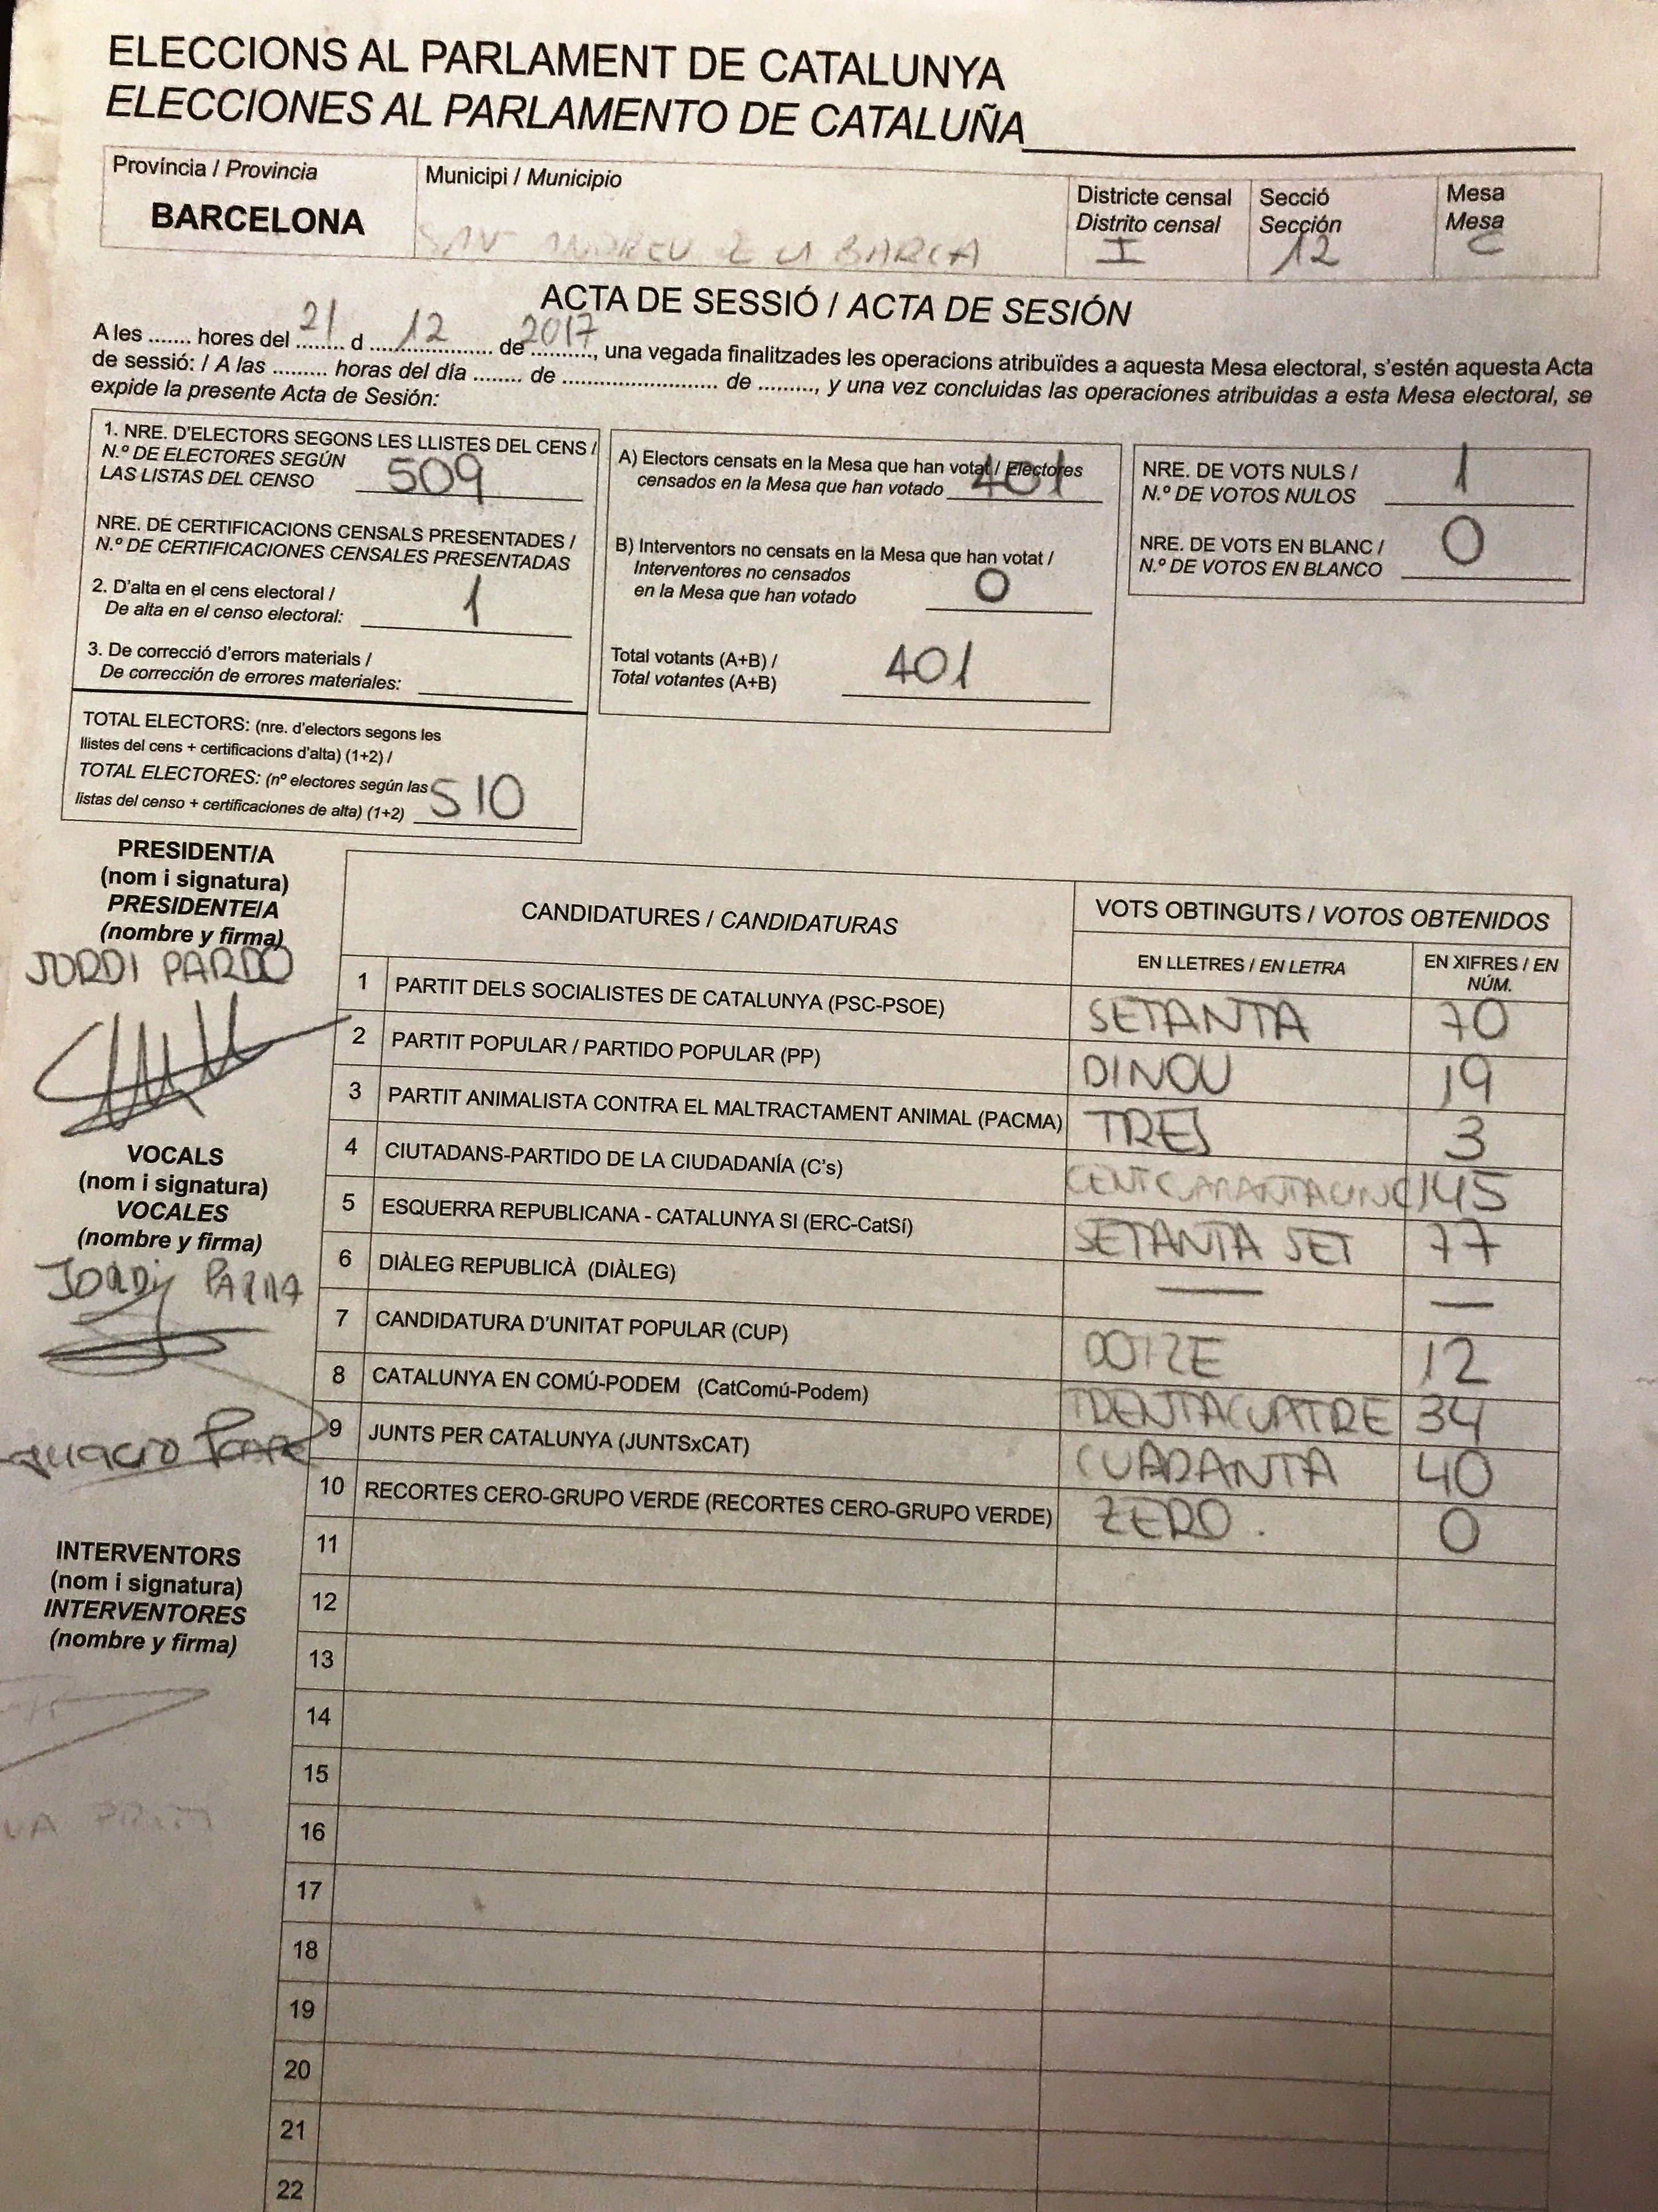 ELECCIONS AL PARLAMENT DE CATALUNYA
ELECCIONES AL PARLAMENTO DE CATALUÑA
Província / Provincia
BARCELONA
Municipi / Municipio
SAN ANDREU D LA BARCA
Districte censal
Distrito censal
I
Secció
Sección
12
Mesa
Mesa
C
ACTA DE SESSIÓ / ACTA DE SESIÓN
A les ....... hores del 21 d 12 de 2017, una vegada finalitzades les operacions atribuïdes a aquesta Mesa electoral, s'estén aquesta Acta
de sessió: / A las ......... horas del día ........ de .......................... de .........., y una vez concluidas las operaciones atribuidas a esta Mesa electoral, se
expide la presente Acta de Sesión:
1. NRE. D'ELECTORS SEGONS LES LLISTES DEL CENS /
N.º DE ELECTORES SEGÚN
LAS LISTAS DEL CENSO 509
NRE. DE CERTIFICACIONS CENSALS PRESENTADES /
N.º DE CERTIFICACIONES CENSALES PRESENTADAS
2. D'alta en el cens electoral /
De alta en el censo electoral: 1
3. De correcció d'errors materials /
De corrección de errores materiales:
TOTAL ELECTORS: (nre. d'electors segons les
llistes del cens + certificacions d'alta) (1+2) /
TOTAL ELECTORES: (nº electores según las
listas del censo + certificaciones de alta) (1+2) 510
A) Electors censats en la Mesa que han votat / Electores
censados en la Mesa que han votado 401
B) Interventors no censats en la Mesa que han votat /
Interventores no censados
en la Mesa que han votado 0
Total votants (A+B) /
Total votantes (A+B) 401
NRE. DE VOTS NULS /
N.º DE VOTOS NULOS 1
NRE. DE VOTS EN BLANC /
N.º DE VOTOS EN BLANCO 0
PRESIDENT/A
(nom i signatura)
PRESIDENTE/A
(nombre y firma)
JORDI PARDO
VOCALS
(nom i signatura)
VOCALES
(nombre y firma)
JORDI PARRA
INTERVENTORS
(nom i signatura)
INTERVENTORES
(nombre y firma)
CANDIDATURES / CANDIDATURAS
VOTS OBTINGUTS / VOTOS OBTENIDOS
EN LLETRES / EN LETRA
EN XIFRES / EN
NÚM.
1 PARTIT DELS SOCIALISTES DE CATALUNYA (PSC-PSOE) SETANTA 70
2 PARTIT POPULAR / PARTIDO POPULAR (PP) DINOU 19
3 PARTIT ANIMALISTA CONTRA EL MALTRACTAMENT ANIMAL (PACMA) TRES 3
4 CIUTADANS-PARTIDO DE LA CIUDADANÍA (C's) CENTCUARANTACINC 145
5 ESQUERRA REPUBLICANA - CATALUNYA SI (ERC-CatSí) SETANTA SET 77
6 DIÀLEG REPUBLICÀ (DIÀLEG) — —
7 CANDIDATURA D'UNITAT POPULAR (CUP) DOTZE 12
8 CATALUNYA EN COMÚ-PODEM (CatComú-Podem) TRENTACUATRE 34
9 JUNTS PER CATALUNYA (JUNTSxCAT) CUARANTA 40
10 RECORTES CERO-GRUPO VERDE (RECORTES CERO-GRUPO VERDE) ZERO. 0
11
12
13
14
15
16
17
18
19
20
21
22